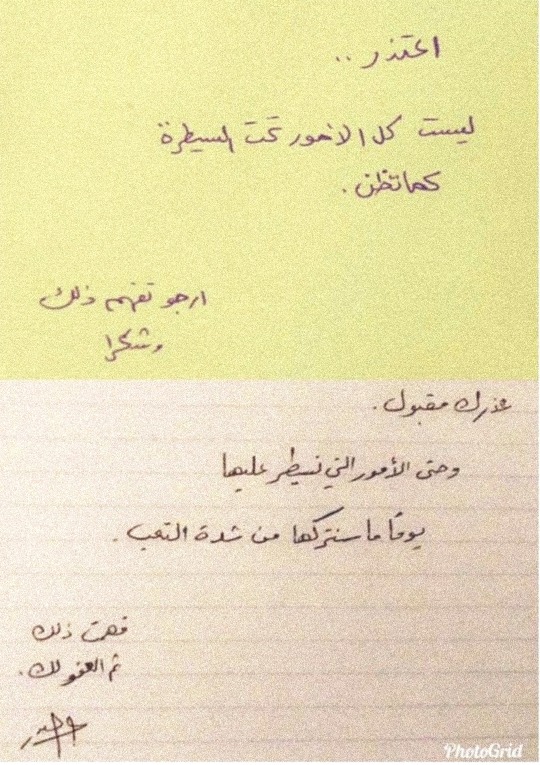 اعتذر ..
ليست كل الامور تحت السيطرة
كما تظن .
ارجو تفهم ذلك
وشكرا
عذرك مقبول .
وحتى الأمور التي نسيطر عليها
يومًا ما سنتركها من شدة التعب .
فهمت ذلك
ثم العفو لك .
PhotoGrid